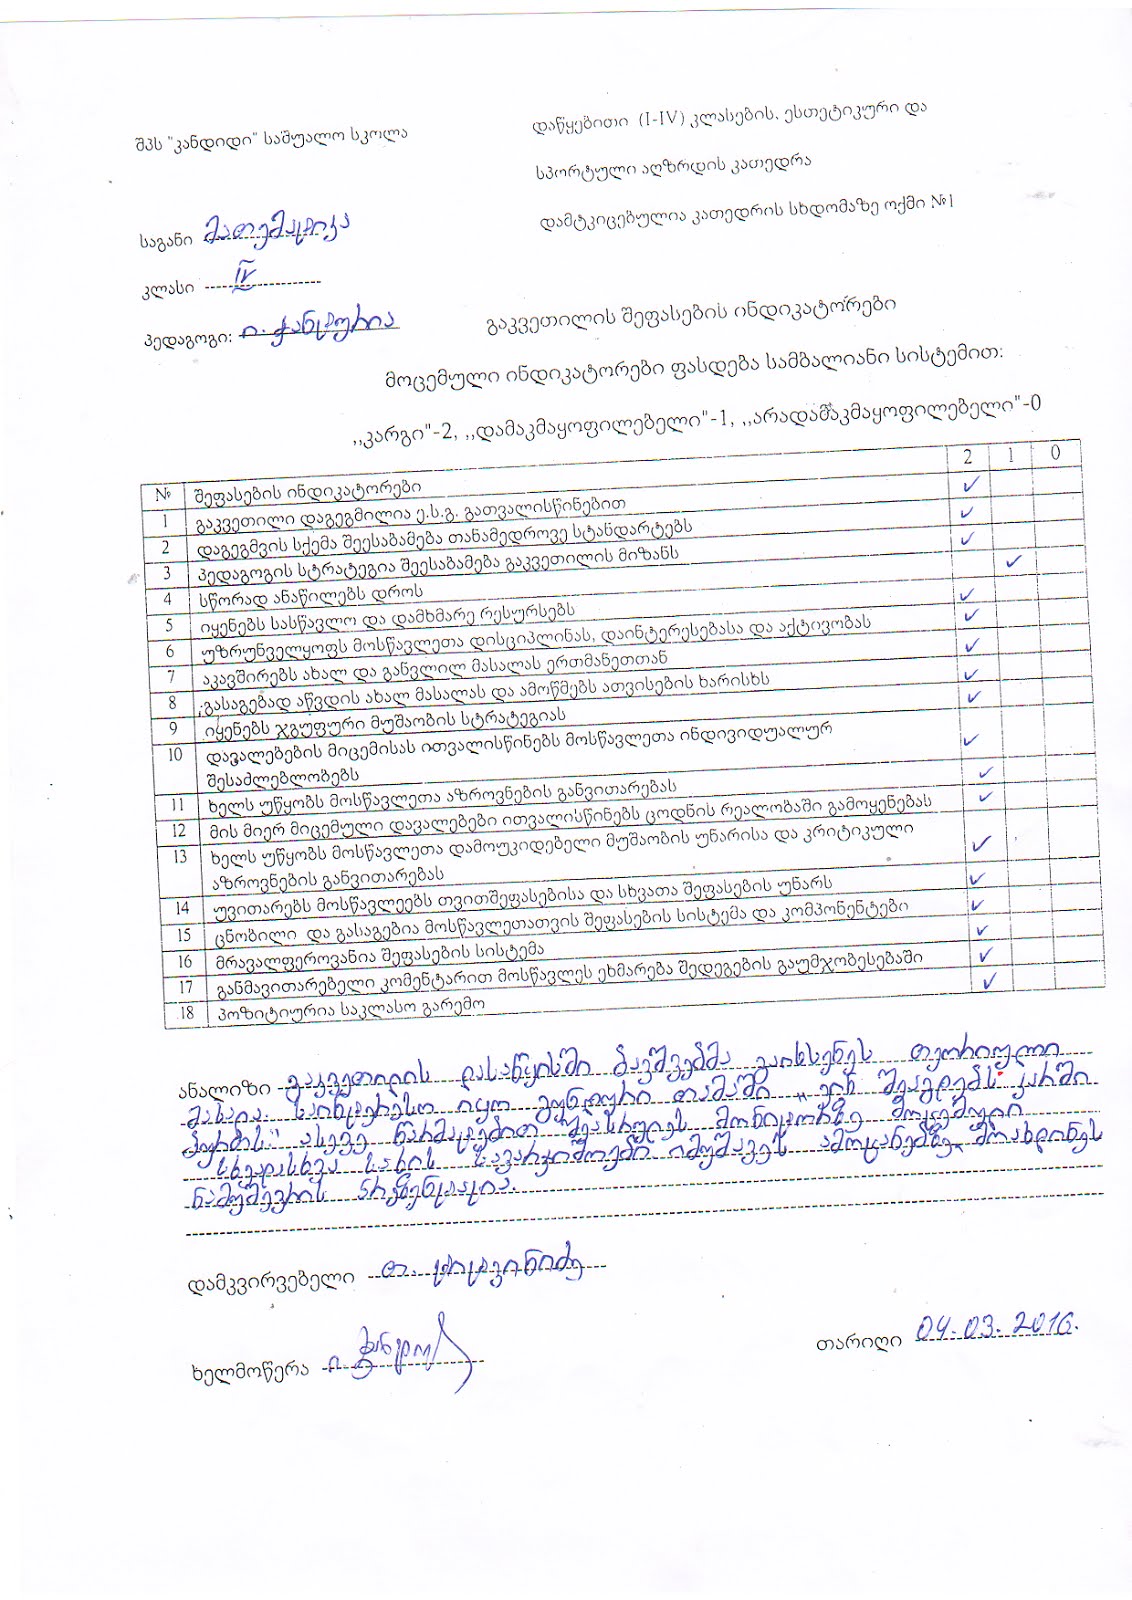 შპს "კანდიდი" საშუალო სკოლა
დაწყებითი (I-IV) კლასების, ესთეტიკური და
სპორტული აღზრდის კათედრა
დამტკიცებულია კათედრის სხდომაზე ოქმი №1
საგანი მათემატიკა
კლასი IV
პედაგოგი: ი. ჭანტურია
გაკვეთილის შეფასების ინდიკატორები
მოცემული ინდიკატორები ფასდება სამბალიანი სისტემით:
,,კარგი"-2, ,,დამაკმაყოფილებელი"-1, ,,არადამაკმაყოფილებელი"-0
№ შეფასების ინდიკატორები 2 1 0
1 გაკვეთილი დაგეგმილია ე.ს.გ. გათვალისწინებით ✓
2 დაგეგმვის სქემა შეესაბამება თანამედროვე სტანდარტებს ✓
3 პედაგოგის სტრატეგია შეესაბამება გაკვეთილის მიზანს ✓
4 სწორად ანაწილებს დროს ✓
5 იყენებს სასწავლო და დამხმარე რესურსებს ✓
6 უზრუნველყოფს მოსწავლეთა დისციპლინას, დაინტერესებასა და აქტივობას ✓
7 აკავშირებს ახალ და განვლილ მასალას ერთმანეთთან ✓
8 გასაგებად აწვდის ახალ მასალას და ამოწმებს ათვისების ხარისხს ✓
9 იყენებს ჯგუფური მუშაობის სტრატეგიას ✓
10 დავალებების მიცემისას ითვალისწინებს მოსწავლეთა ინდივიდუალურ
შესაძლებლობებს ✓
11 ხელს უწყობს მოსწავლეთა აზროვნების განვითარებას ✓
12 მის მიერ მიცემული დავალებები ითვალისწინებს ცოდნის რეალობაში გამოყენებას ✓
13 ხელს უწყობს მოსწავლეთა დამოუკიდებელი მუშაობის უნარისა და კრიტიკული
აზროვნების განვითარებას ✓
14 უვითარებს მოსწავლეებს თვითშეფასებისა და სხვათა შეფასების უნარს ✓
15 ცნობილი და გასაგებია მოსწავლეთათვის შეფასების სისტემა და კომპონენტები ✓
16 მრავალფეროვანია შეფასების სისტემა ✓
17 განმავითარებელი კომენტარით მოსწავლეს ეხმარება შედეგების გაუმჯობესებაში ✓
18 პოზიტიურია საკლასო გარემო ✓
ანალიზი გაკვეთილის დასაწყისში ბავშვებმა გაიხსენეს თეორიული
მასალა. საინტერესო იყო გუნდური თამაში „ვინ შეაგდებს კარში
ბურთს." ასევე წარმატებით შეასრულეს მონიტორზე მოცემული
სხვადასხვა სახის სავარჯიშოები. იმუშავეს ამოცანებზე, მოახდინეს
ნამუშევრის პრეზენტაცია.
დამკვირვებელი თ. ტიტვინიძე
ხელმოწერა ი. ჭანტურ
თარიღი 04.03.2016.